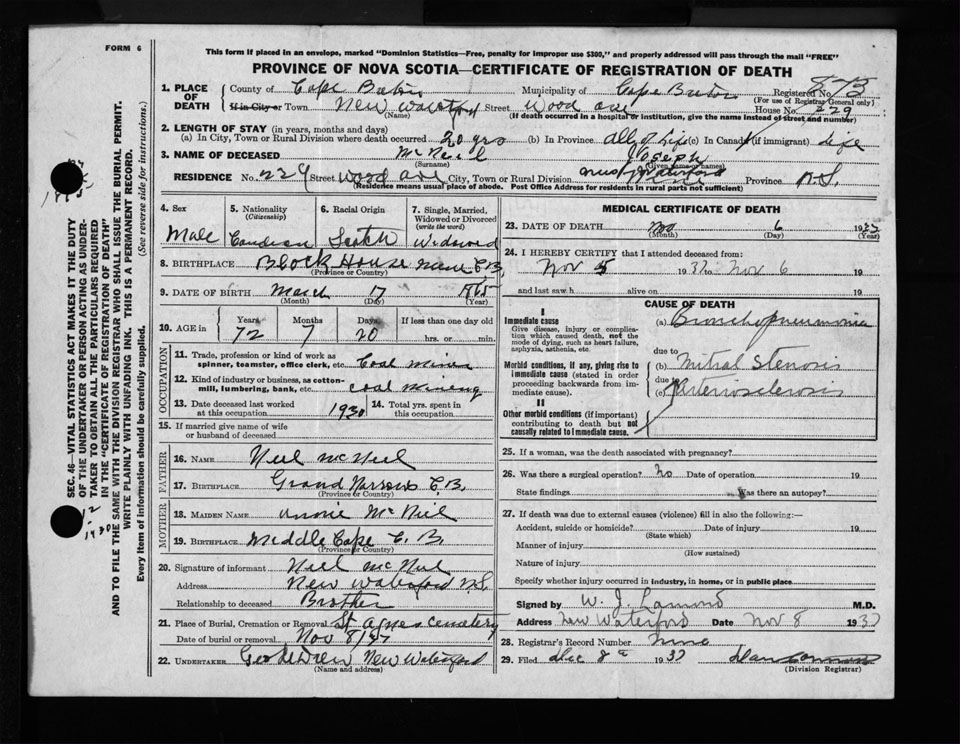 FORM 6
This form if placed in an envelope, marked "Dominion Statistics—Free, penalty for improper use $300," and properly addressed will pass through the mail "FREE"
PROVINCE OF NOVA SCOTIA—CERTIFICATE OF REGISTRATION OF DEATH
SEC. 46—VITAL STATISTICS ACT MAKES IT THE DUTY
OF THE UNDERTAKER OR PERSON ACTING AS UNDER-
TAKER TO OBTAIN ALL THE PARTICULARS REQUIRED
IN THE "CERTIFICATE OF REGISTRATION OF DEATH"
AND TO FILE THE SAME WITH THE DIVISION REGISTRAR WHO SHALL ISSUE THE BURIAL PERMIT.
WRITE PLAINLY WITH UNFADING INK. THIS IS A PERMANENT RECORD.
(See reverse side for instructions.)
Every item of information should be carefully supplied.
1. PLACE OF DEATH County of Cape Breton Municipality of Cape Breton Registered No. 873
(For use of Registrar General only)
If in City or Town New Waterford Street Wood ave House No. 229
(Name) (If death occurred in a hospital or institution, give the name instead of street and number)
2. LENGTH OF STAY (in years, months and days)
(a) In City, Town or Rural Division where death occurred 20 yrs (b) In Province All of Life (c) In Canada (if immigrant) life
3. NAME OF DECEASED McNeil Joseph
(Surname) (Given name or names)
RESIDENCE No. 229 Street Wood Ave City, Town or Rural Division New Waterford Province N.S.
(Residence means usual place of abode. Post Office Address for residents in rural parts not sufficient)
4. Sex Male
5. Nationality (Citizenship) Canadian
6. Racial Origin Scotch
7. Single, Married, Widowed or Divorced (write the word) Widowed
8. BIRTHPLACE Block House Mine C.B.
(Province or Country)
9. DATE OF BIRTH March 17 1865
(Month) (Day) (Year)
10. AGE in Years 72 Months 7 Days 20 If less than one day old hrs. or min.
OCCUPATION
11. Trade, profession or kind of work as spinner, teamster, office clerk, etc. Coal miner
12. Kind of industry or business, as cotton-mill, lumbering, bank, etc. coal mining
13. Date deceased last worked at this occupation 1930 14. Total yrs. spent in this occupation
15. If married give name of wife or husband of deceased
FATHER
16. NAME Neil McNeil
17. BIRTHPLACE Grand Narrows C.B.
(Province or Country)
MOTHER
18. MAIDEN NAME Annie McNeil
19. BIRTHPLACE Middle Cape C. B.
(Province or Country)
20. Signature of informant Neil McNeil
Address New Waterford N.S.
Relationship to deceased Brother
21. Place of Burial, Cremation or Removal St Agnes Cemetery
Date of burial or removal Nov 8/37
22. UNDERTAKER New Waterford
(Name and address)
MEDICAL CERTIFICATE OF DEATH
23. DATE OF DEATH Nov 6 1937
(Month) (Day) (Year)
24. I HEREBY CERTIFY that I attended deceased from:
Nov 5 1937 to Nov 6 19
and last saw h alive on 19
CAUSE OF DEATH
I
Immediate cause
Give disease, injury or complication which caused death, not the mode of dying, such as heart failure, asphyxia, asthenia, etc.
(a) Bronchopneumonia
due to
Morbid conditions, if any, giving rise to immediate cause (stated in order proceeding backwards from immediate cause).
(b) Mitral Stenosis
due to
(c) Arteriosclerosis
II
Other morbid conditions (if important) contributing to death but not causally related to immediate cause.
25. If a woman, was the death associated with pregnancy?
26. Was there a surgical operation? no Date of operation 19
State findings Was there an autopsy?
27. If death was due to external causes (violence) fill in also the following:—
Accident, suicide or homicide? Date of injury 19
(State which)
Manner of injury
(How sustained)
Nature of injury
Specify whether injury occurred in industry, in home, or in public place
Signed by W. J. Lamond M.D.
Address New Waterford Date Nov 8 1937
28. Registrar's Record Number
29. Filed Dec 8 1937
(Division Registrar)